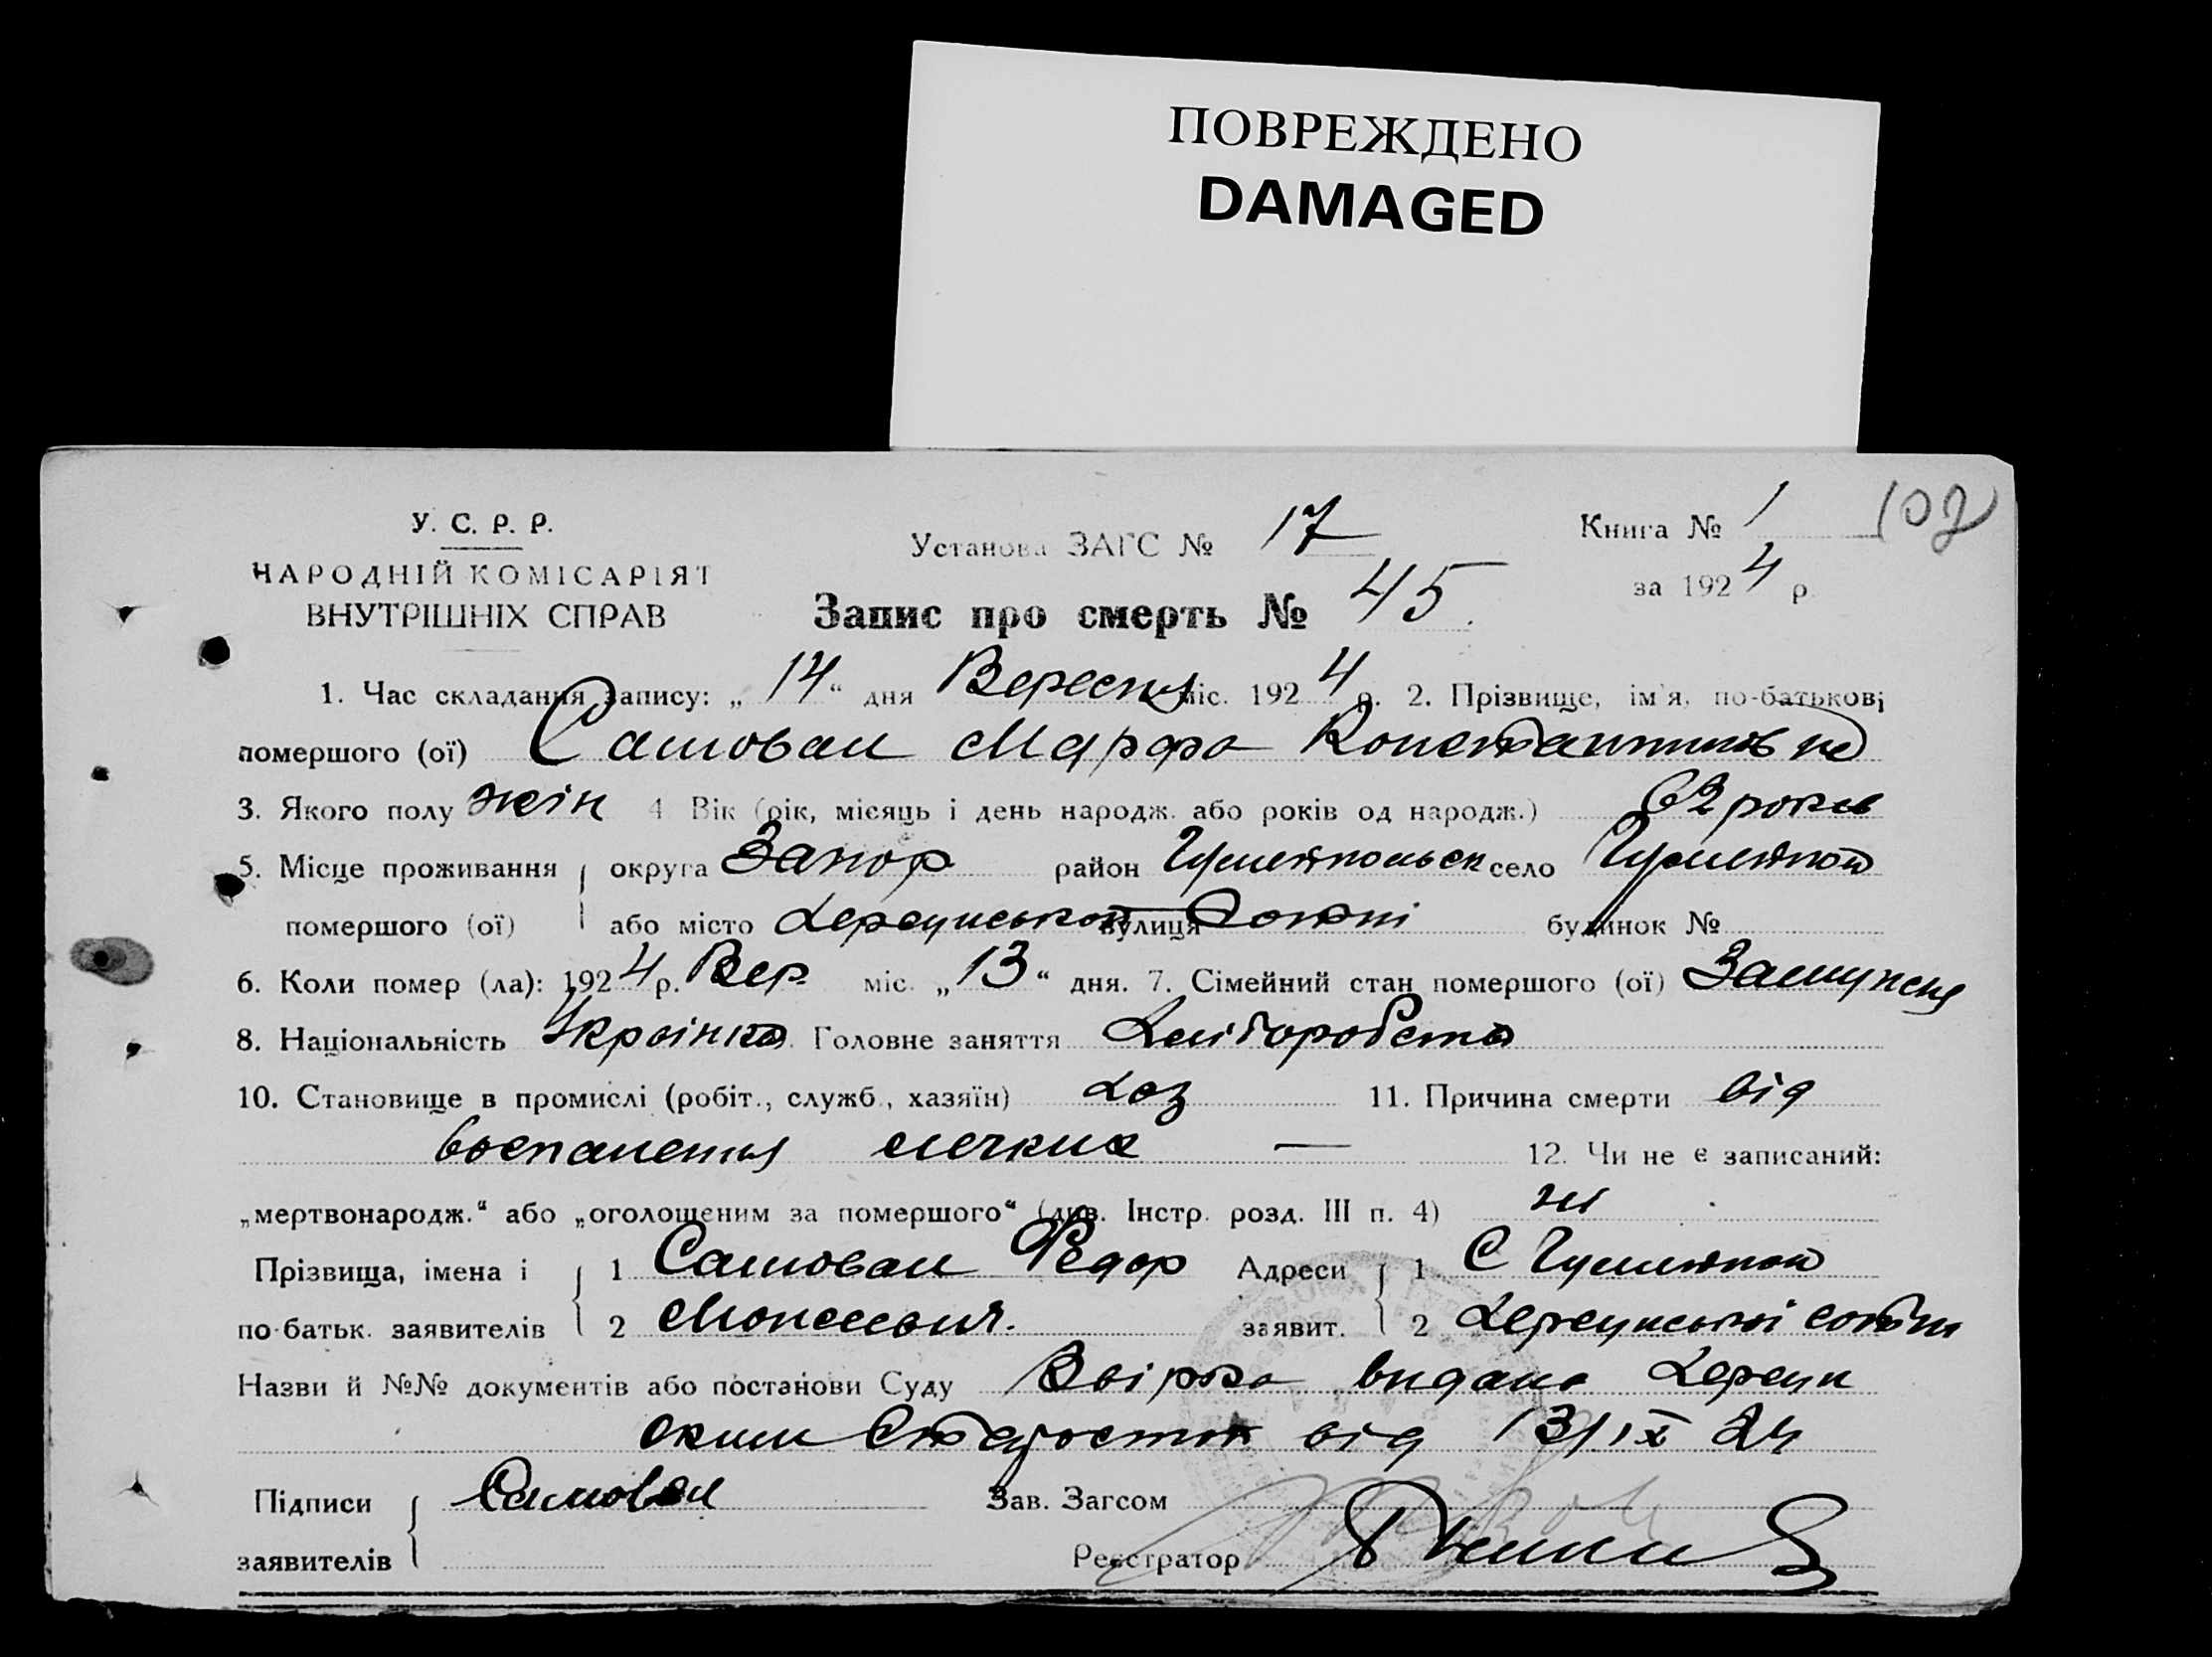 ПОВРЕЖДЕНО
DAMAGED
У. С. Р. Р.
НАРОДНІЙ КОМІСАРІЯТ
ВНУТРІШНІХ СПРАВ
Установа ЗАГС № 17
Запис про смерть № 45
Книга № 1 102
за 1924 р.
1. Час складання запису: „14“ дня Вересня міс. 1924 р. 2. Прізвище, ім'я, по-батькові
помершого (ої) Самовал Марфа Константинівна
3. Якого полу жін 4 Вік (рік, місяць і день народж. або років од народж.) 62 років
5. Місце проживання округа Запор район Гуляйпольск село Гуляйполе
помершого (ої) або місто вулиця Сотні будинок №
6. Коли помер (ла): 1924 р. Вер міс. „13“ дня. 7. Сімейний стан помершого (ої) Замужня
8. Національність Українка Головне заняття Хліборобство
10. Становище в промислі (робіт., служб., хазяїн) хаз 11. Причина смерти від
воспаления легких — 12. Чи не є записаний:
„мертвонародж.“ або „оголошеним за помершого“ (див. Інстр. розд. III п. 4) ні
Прізвища, імена і 1 Самовал Федор Адреси 1 С Гуляйполе
по-батьк. заявителів 2 заявит. 2 сотні
Назви й №№ документів або постанови Суду видана
від 13/IX 24
Підписи Самовал Зав. Загсом
заявителів Реєстратор